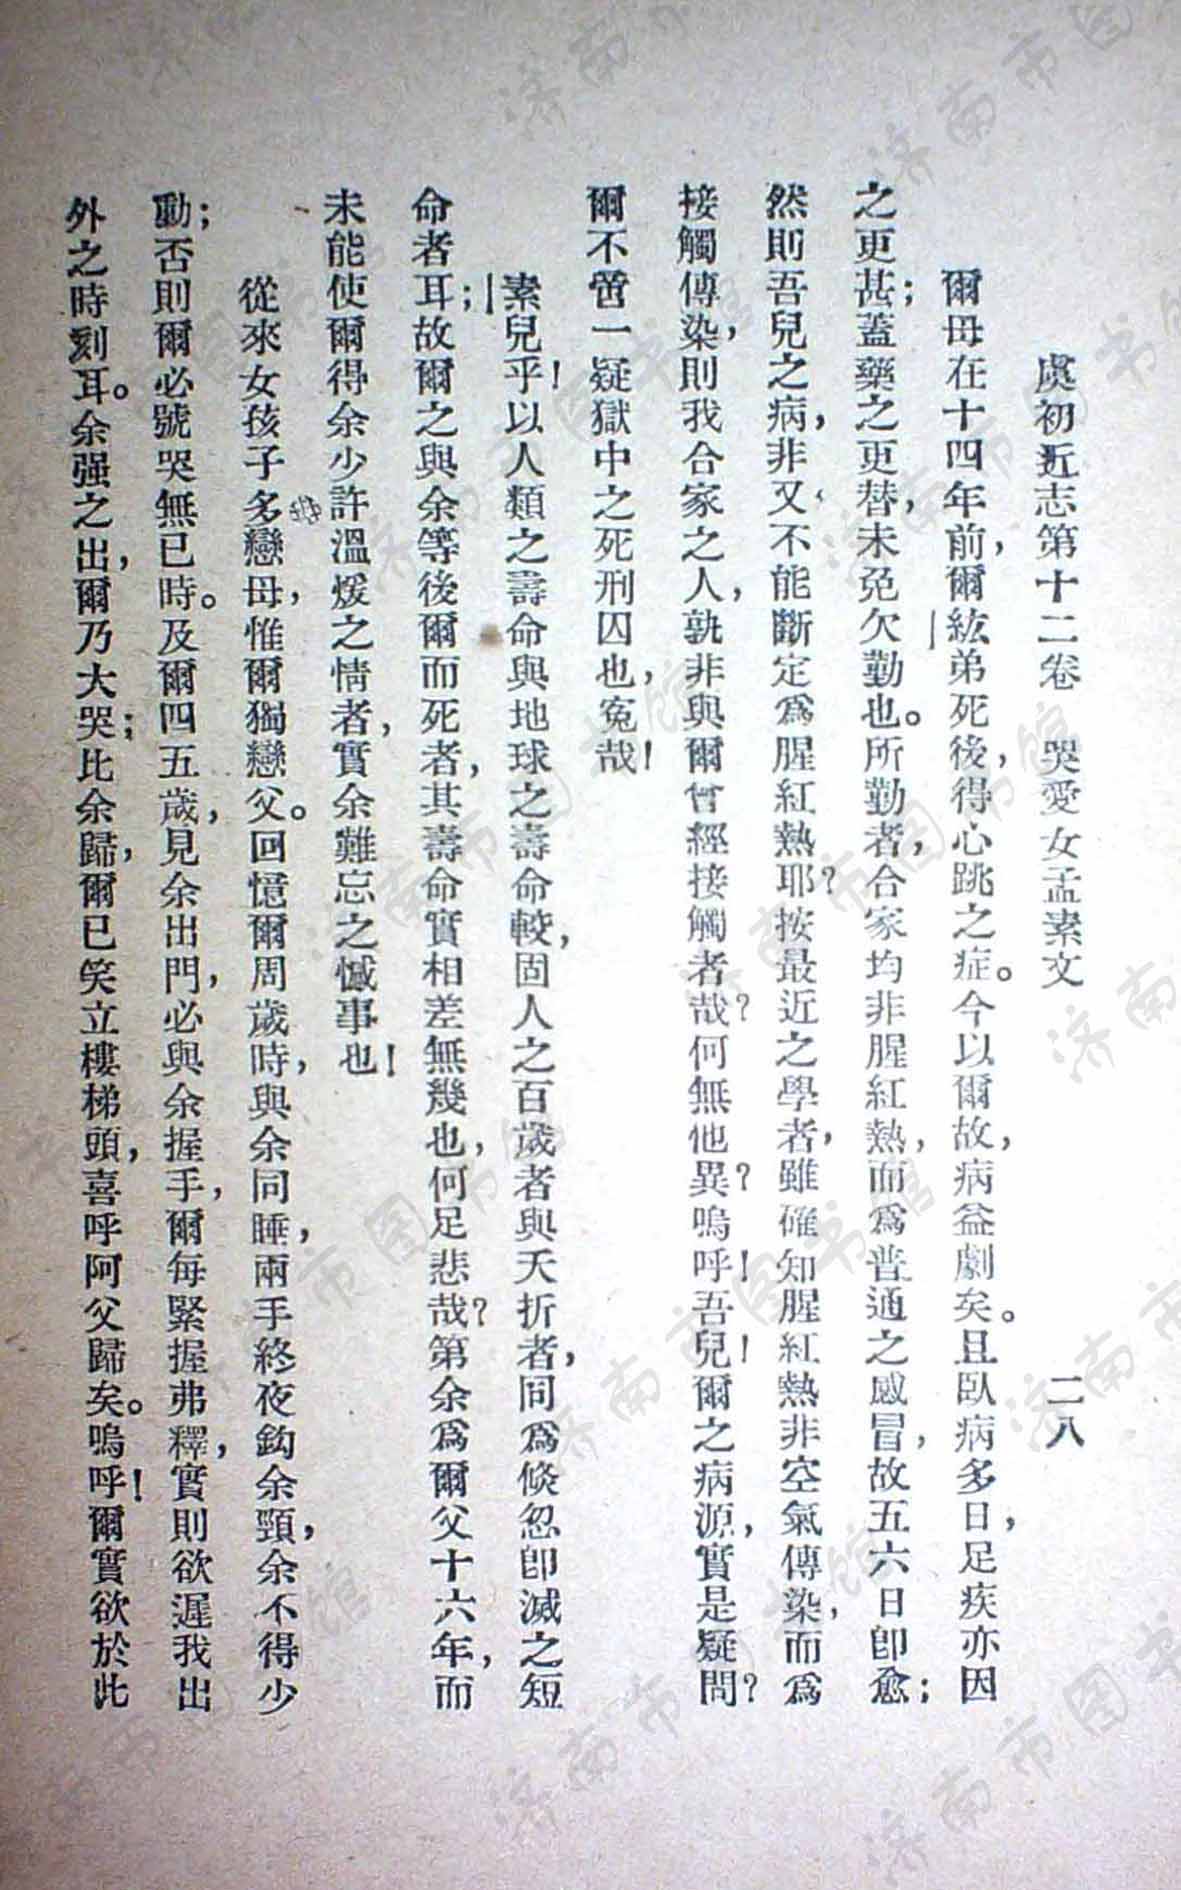 虞初近志第十二卷　哭愛女孟素文　二八
爾母在十四年前，爾紘弟死後，得心跳之症。今以爾故，病益劇矣。且臥病多日，足疾亦因
之更甚；蓋藥之更替，未免欠勤也。所勤者，合家均非腥紅熱，而爲普通之感冒，故五六日卽愈；
然則吾兒之病，非又不能斷定爲腥紅熱耶？按最近之學者，雖確知腥紅熱非空氣傳染，而爲
接觸傳染，則我合家之人，孰非與爾曾經接觸者哉？何無他異？嗚呼！吾兒！爾之病源，實是疑問？
爾不啻一疑獄中之死刑囚也，冤哉！
素兒乎！以人類之壽命與地球之壽命較，固人之百歲者與夭折者，同爲倐忽卽滅之短
命者耳；故爾之與余等後爾而死者，其壽命實相差無幾也，何足悲哉？第余爲爾父十六年，而
未能使爾得余少許溫煖之情者，實余難忘之憾事也！
從來女孩子多戀母，惟爾獨戀父。回憶爾周歲時，與余同睡，兩手終夜鈎余頸，余不得少
動；否則爾必號哭無已時。及爾四五歲，見余出門，必與余握手，爾每緊握弗釋，實則欲遲我出
外之時刻耳。余强之出，爾乃大哭；比余歸，爾已笑立樓梯頭，喜呼阿父歸矣。嗚呼！爾實欲於此
济南市图书馆